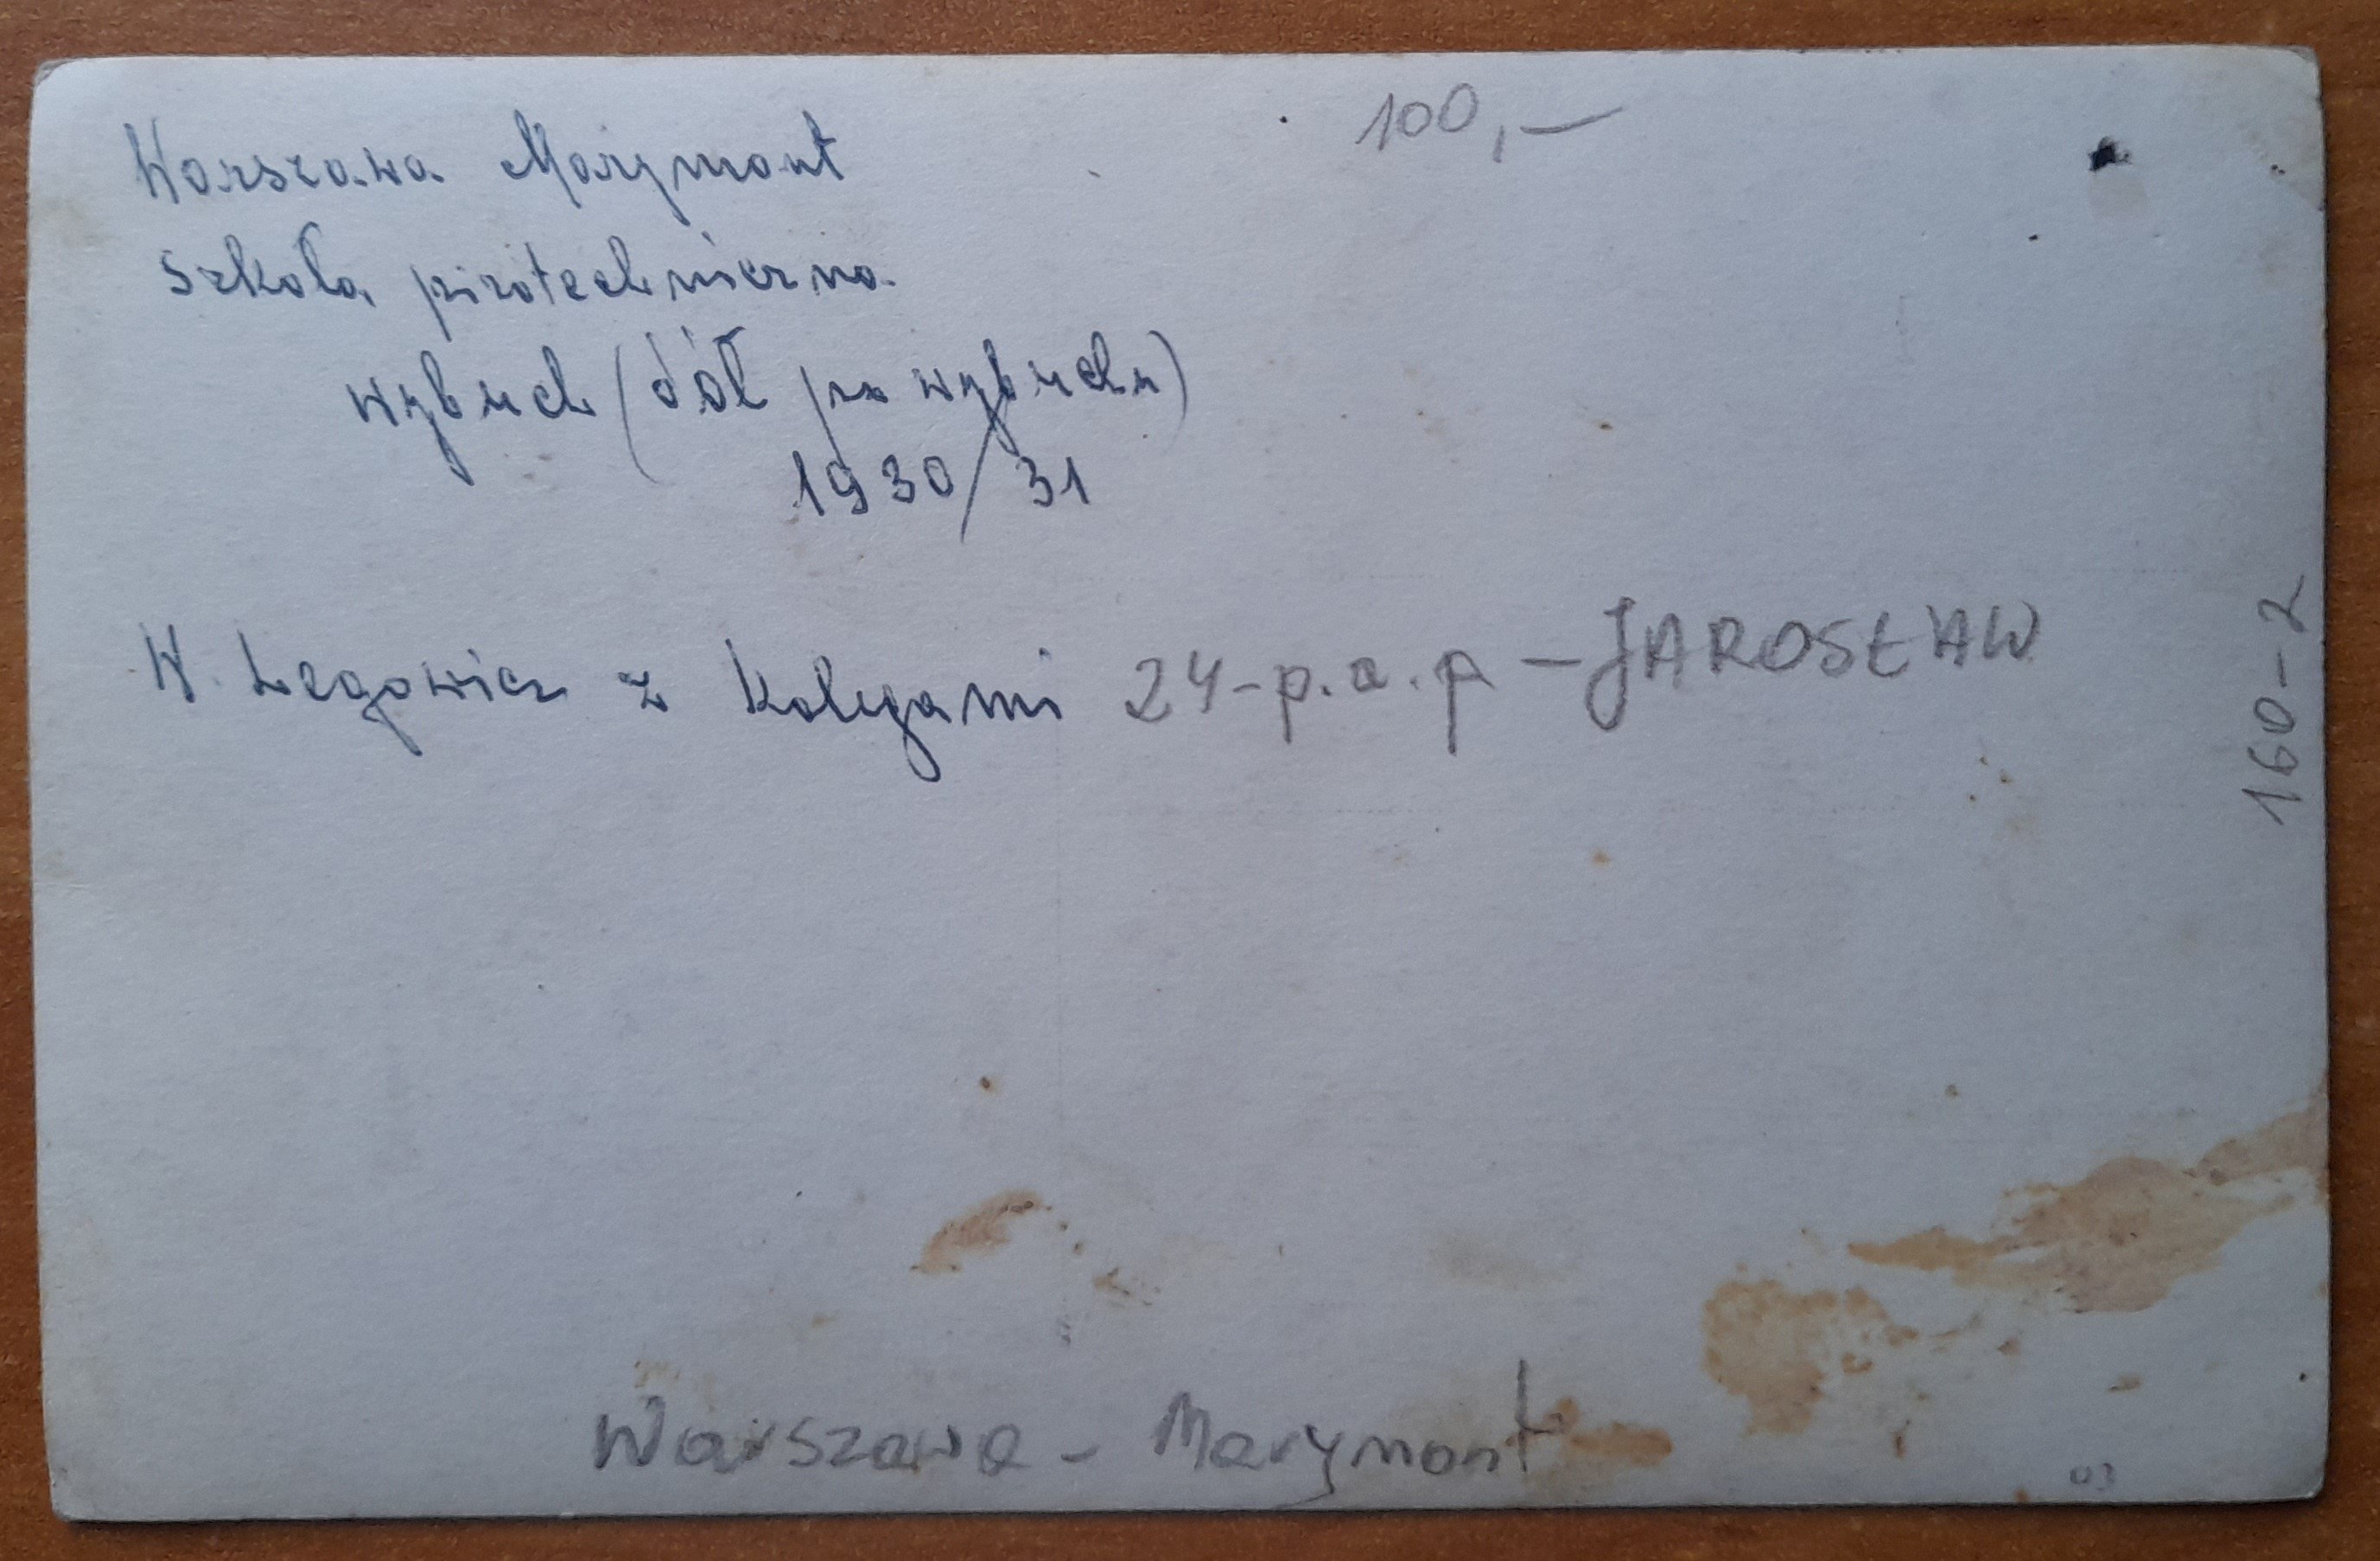 100,—
Warszawa Marymont
Szkoła pirotechniczna
wybuch (dół po wybuchu)
1930/31
W. Łegowicz z kolegami 24-p.a.p — JAROSŁAW
160-2
Warszawa - Marymont
03